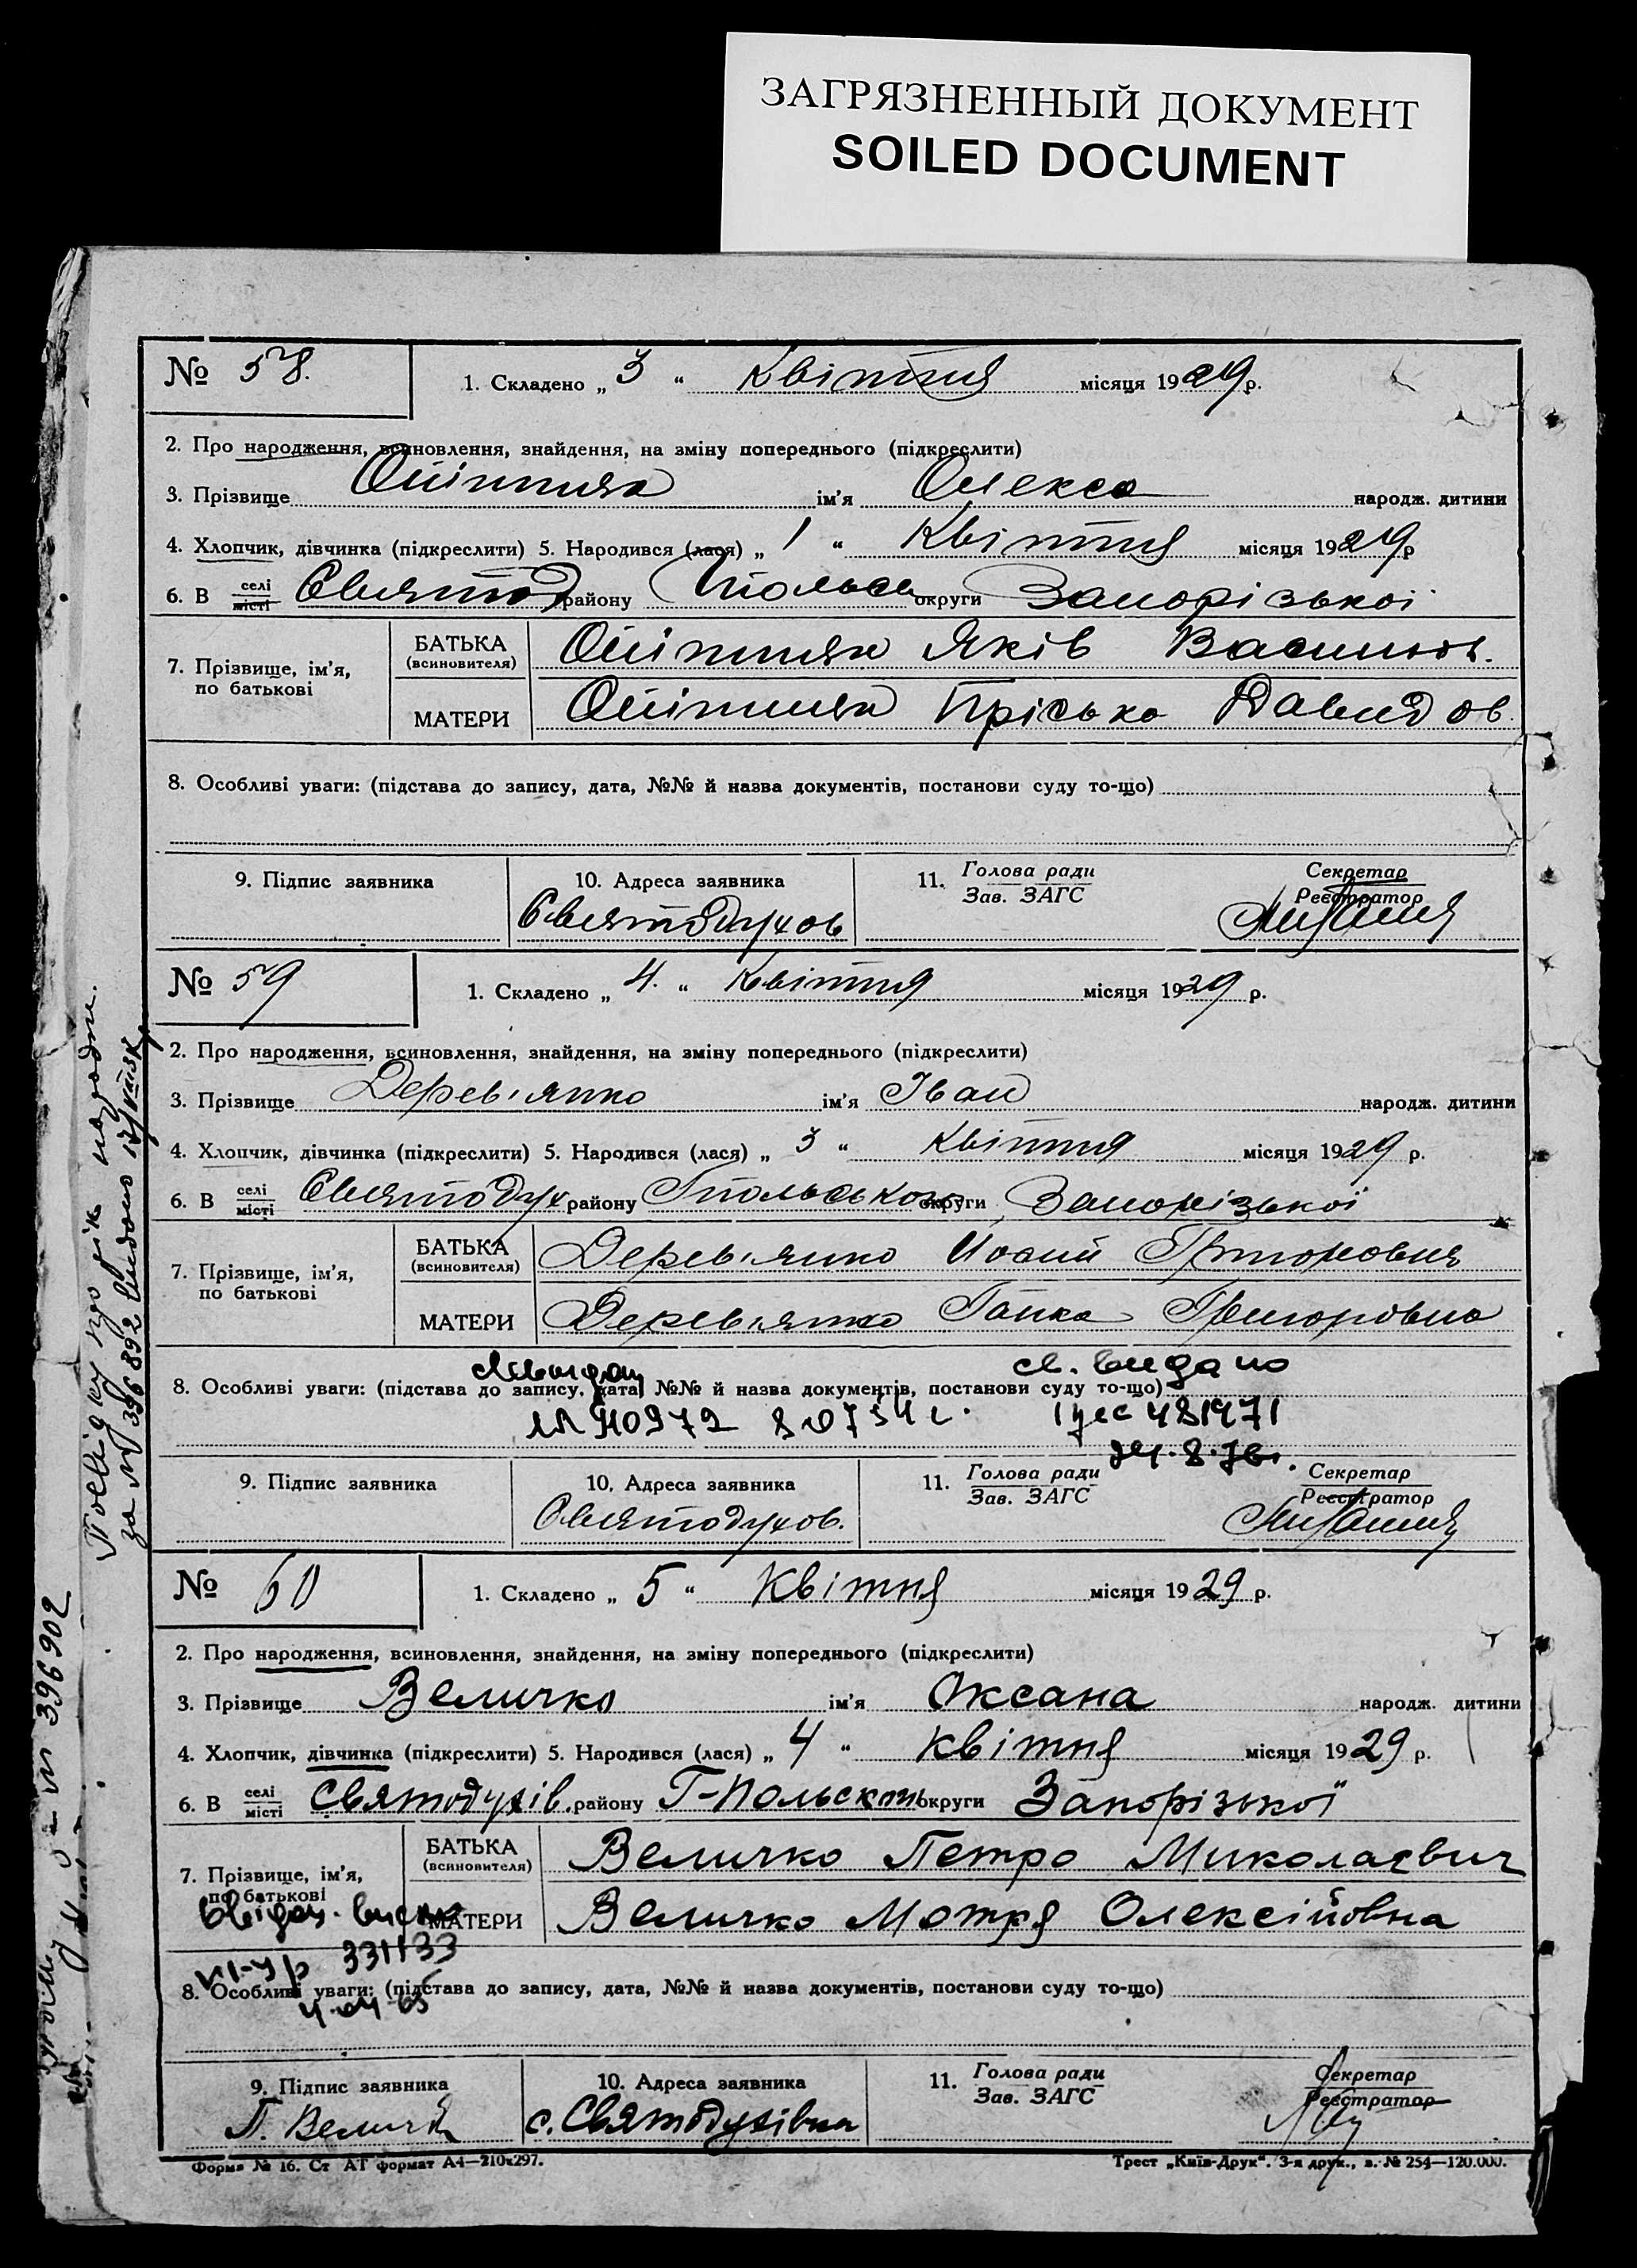 ЗАГРЯЗНЕННЫЙ ДОКУМЕНТ
SOILED DOCUMENT
№ 58.
1. Складено „ 3 “ Квітня місяця 1929 р.
2. Про народження, всиновлення, знайдення, на зміну попереднього (підкреслити)
3. Прізвище ім'я Олекса народж. дитини
4. Хлопчик, дівчинка (підкреслити) 5. Народився (лася) „ 1 “ Квітня місяця 1929 р
6. В селі місті Святод району округи Запорізької
7. Прізвище, ім'я, по батькові
БАТЬКА (всиновителя) Яків Васильов.
МАТЕРИ Пріська Давидов.
8. Особливі уваги: (підстава до запису, дата, №№ й назва документів, постанови суду то-що)
9. Підпис заявника
10. Адреса заявника
Святодухов
11. Голова ради
Зав. ЗАГС
Секретар
Реєстратор
№ 59
1. Складено „ 4. “ Квітня місяця 1929 р.
2. Про народження, всиновлення, знайдення, на зміну попереднього (підкреслити)
3. Прізвище Дерев'янко ім'я Іван народж. дитини
4. Хлопчик, дівчинка (підкреслити) 5. Народився (лася) „ 3 “ Квітня місяця 1929 р.
6. В селі місті Святодух району Гпольської округи Запорізької
7. Прізвище, ім'я, по батькові
БАТЬКА (всиновителя) Дерев'янко
МАТЕРИ Дерев'янко Гапка Григоровна
св. видано
8. Особливі уваги: (підстава до запису, дата, №№ й назва документів, постанови суду то-що)
481471
9. Підпис заявника
10. Адреса заявника
Святодухов.
11. Голова ради
Зав. ЗАГС
Секретар
Реєстратор
№ 60
1. Складено „ 5 “ Квітня місяця 1929 р.
2. Про народження, всиновлення, знайдення, на зміну попереднього (підкреслити)
3. Прізвище Величко ім'я Оксана народж. дитини
4. Хлопчик, дівчинка (підкреслити) 5. Народився (лася) „ 4 “ квітня місяця 1929 р.
6. В селі місті Святодухів. району Г-Польської округи Запорізької
7. Прізвище, ім'я, по батькові
БАТЬКА (всиновителя) Величко Петро Миколаєвич
МАТЕРИ Величко Мотря Олексіївна
331133
8. Особливі уваги: (підстава до запису, дата, №№ й назва документів, постанови суду то-що)
9. Підпис заявника
П. Величко
10. Адреса заявника
с. Святодухівка
11. Голова ради
Зав. ЗАГС
Секретар
Реєстратор
Форма № 16. Ст АТ формат А4—210х297.
Трест „Київ-Друк“. 3-я друк., з. № 254—120.000.
за № 396892 видано
396902